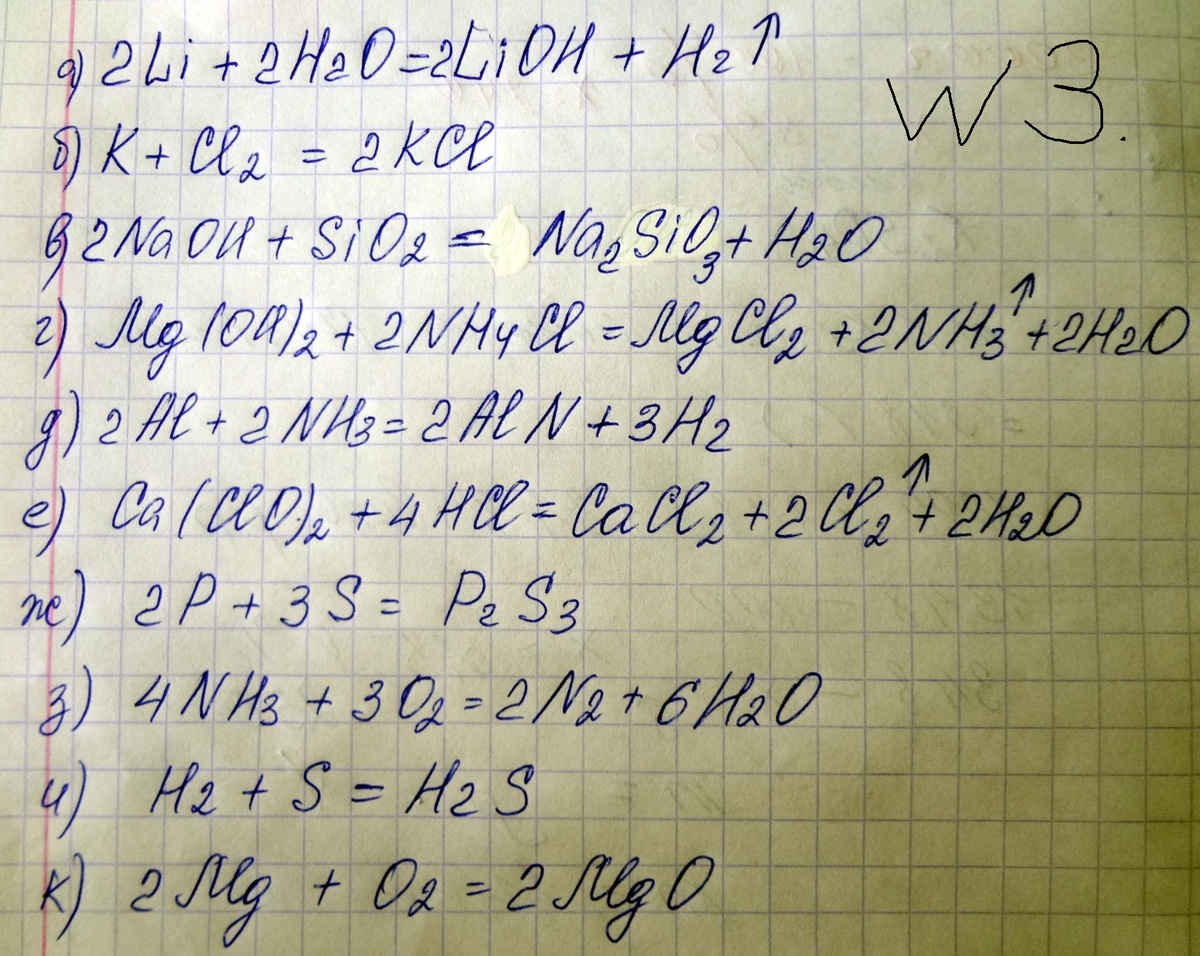 W 3.
а) 2Li + 2H2O = 2LiOH + H2↑
б) K + Cl2 = 2KCl
в) 2NaOH + SiO2 = Na2SiO3 + H2O
г) Mg(OH)2 + 2NH4Cl = MgCl2 + 2NH3↑ + 2H2O
д) 2Al + 2NH3 = 2AlN + 3H2
е) Ca(ClO)2 + 4HCl = CaCl2 + 2Cl2↑ + 2H2O
ж) 2P + 3S = P2S3
з) 4NH3 + 3O2 = 2N2 + 6H2O
и) H2 + S = H2S
к) 2Mg + O2 = 2MgO